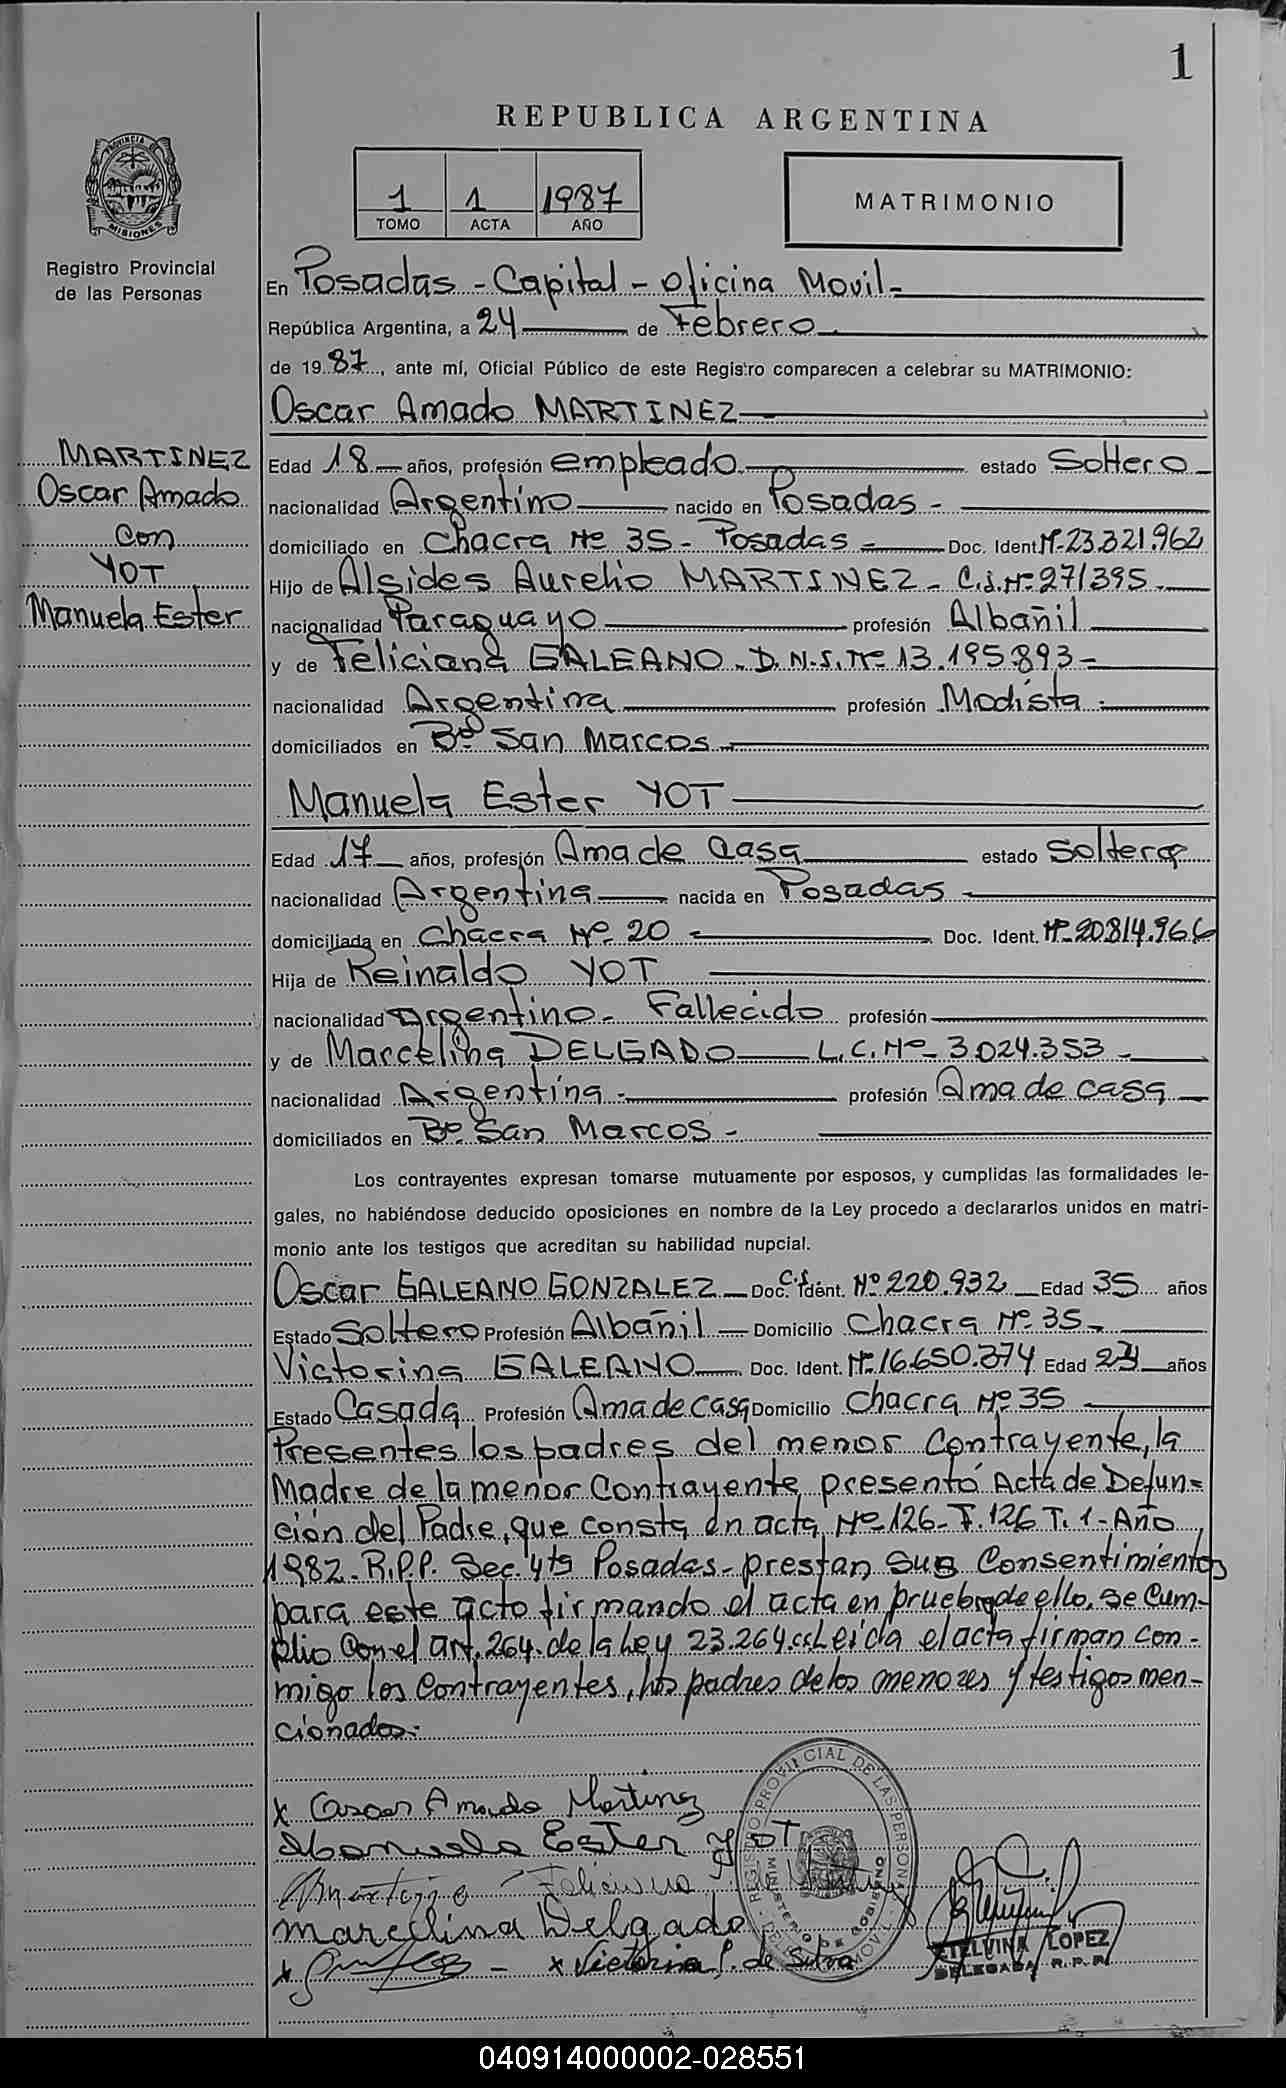 1
REPUBLICA ARGENTINA
1 1 1987
TOMO ACTA AÑO
MATRIMONIO
PROVINCIA DE MISIONES
Registro Provincial
de las Personas
En Posadas - Capital - Oficina Movil -
República Argentina, a 24 de Febrero
de 1987, ante mí, Oficial Público de este Registro comparecen a celebrar su MATRIMONIO:
Oscar Amado MARTINEZ
MARTINEZ
Oscar Amado
con
YOT
Manuela Ester
Edad 18 años, profesión empleado estado Soltero
nacionalidad Argentino nacido en Posadas -
domiciliado en Chacra Nº 35 - Posadas - Doc. Ident. Nº 23.321.962
Hijo de Alsides Aurelio MARTINEZ - C.I. Nº 271395 -
nacionalidad Paraguayo profesión Albañil
y de Feliciana GALEANO - D.N.I. Nº 13.195.893 -
nacionalidad Argentina profesión Modista -
domiciliados en Bº San Marcos -
Manuela Ester YOT
Edad 17 años, profesión Ama de Casa estado Soltera
nacionalidad Argentina nacida en Posadas -
domiciliada en Chacra Nº 20 - Doc. Ident. Nº 20.814.966
Hija de Reinaldo YOT
nacionalidad Argentino - Fallecido profesión
y de Marcelina DELGADO L.C. Nº 3.024.353 -
nacionalidad Argentina - profesión Ama de casa
domiciliados en Bº San Marcos -
Los contrayentes expresan tomarse mutuamente por esposos, y cumplidas las formalidades le-
gales, no habiéndose deducido oposiciones en nombre de la Ley procedo a declararlos unidos en matri-
monio ante los testigos que acreditan su habilidad nupcial.
Oscar GALEANO GONZALEZ Doc. C.I. Ident. Nº 220.932 Edad 35 años
Estado Soltero Profesión Albañil Domicilio Chacra Nº 35 -
Victorina GALEANO Doc. Ident. Nº 16.650.374 Edad años
Estado Casada Profesión Ama de casa Domicilio Chacra Nº 35
Presentes los padres del menor Contrayente, la
Madre de la menor Contrayente, presentó Acta de Defun=
ción del Padre, que consta en acta Nº 126 - F. 126 T. 1 - Año
1982 - R.P.P. Sec. 4ta Posadas - prestan sus Consentimientos
para este acto firmando el acta en prueba de ello. Se Cum-
plio con el art. 264 de la Ley 23.264. Leida el acta firman con-
migo los contrayentes, los padres de los menores y testigos men-
cionados.
x Oscar Amado Martinez
Manuela Ester Yot
Feliciana
Marcelina Delgado
x Victorina G. de Silva
REGISTRO PROVINCIAL DE LAS PERSONAS
MINISTERIO DE GOBIERNO
ETELVINA LOPEZ
DELEGADA R.P.P.
040914000002-028551